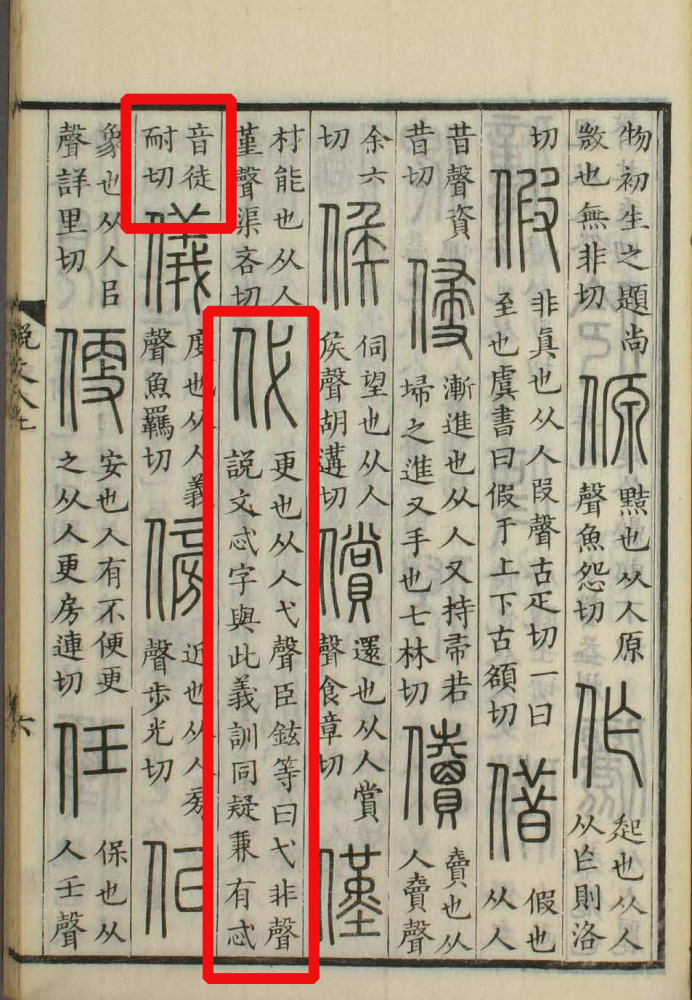 物初生之題尚敳也無非切傆黠也从人原聲魚怨切作起也从人从乍則洛
切假非眞也从人叚聲古疋切一曰至也虞書曰假于上下古頟切借假也从人
昔聲資昔切侵漸進也从人又持帚若埽之進又手也七林切儥賣也从人賣聲
余六切候伺望也从人矦聲胡遘切償還也从人賞聲食章切僅
材能也从人堇聲渠吝切代更也从人弋聲臣鉉等曰弋非聲説文忒字與此義訓同疑兼有忒
音徒耐切儀度也从人義聲魚羈切傍近也从人旁聲步光切佀
象也从人㠯聲詳里切便安也人有不便更之从人更房連切任保也从人壬聲
説文八上
六